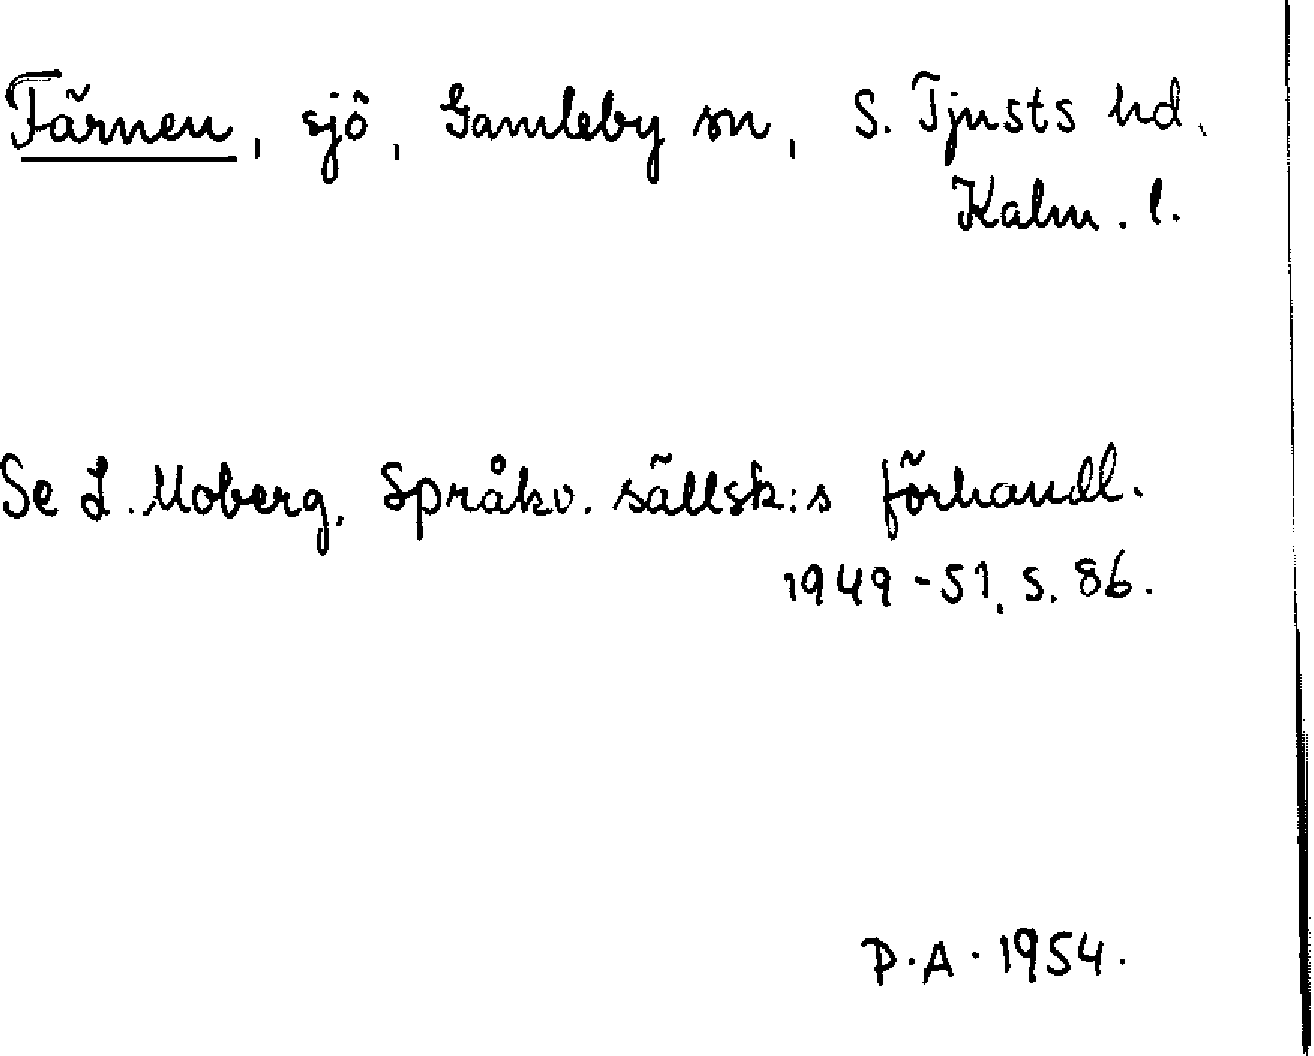 Tärnen, sjö, Gamleby sn, S. Tjusts hd.
Kalm. l.
Se L. Moberg, Språkv. sällsk:s förhandl.
1949-51, s. 86.
P.A. 1954.